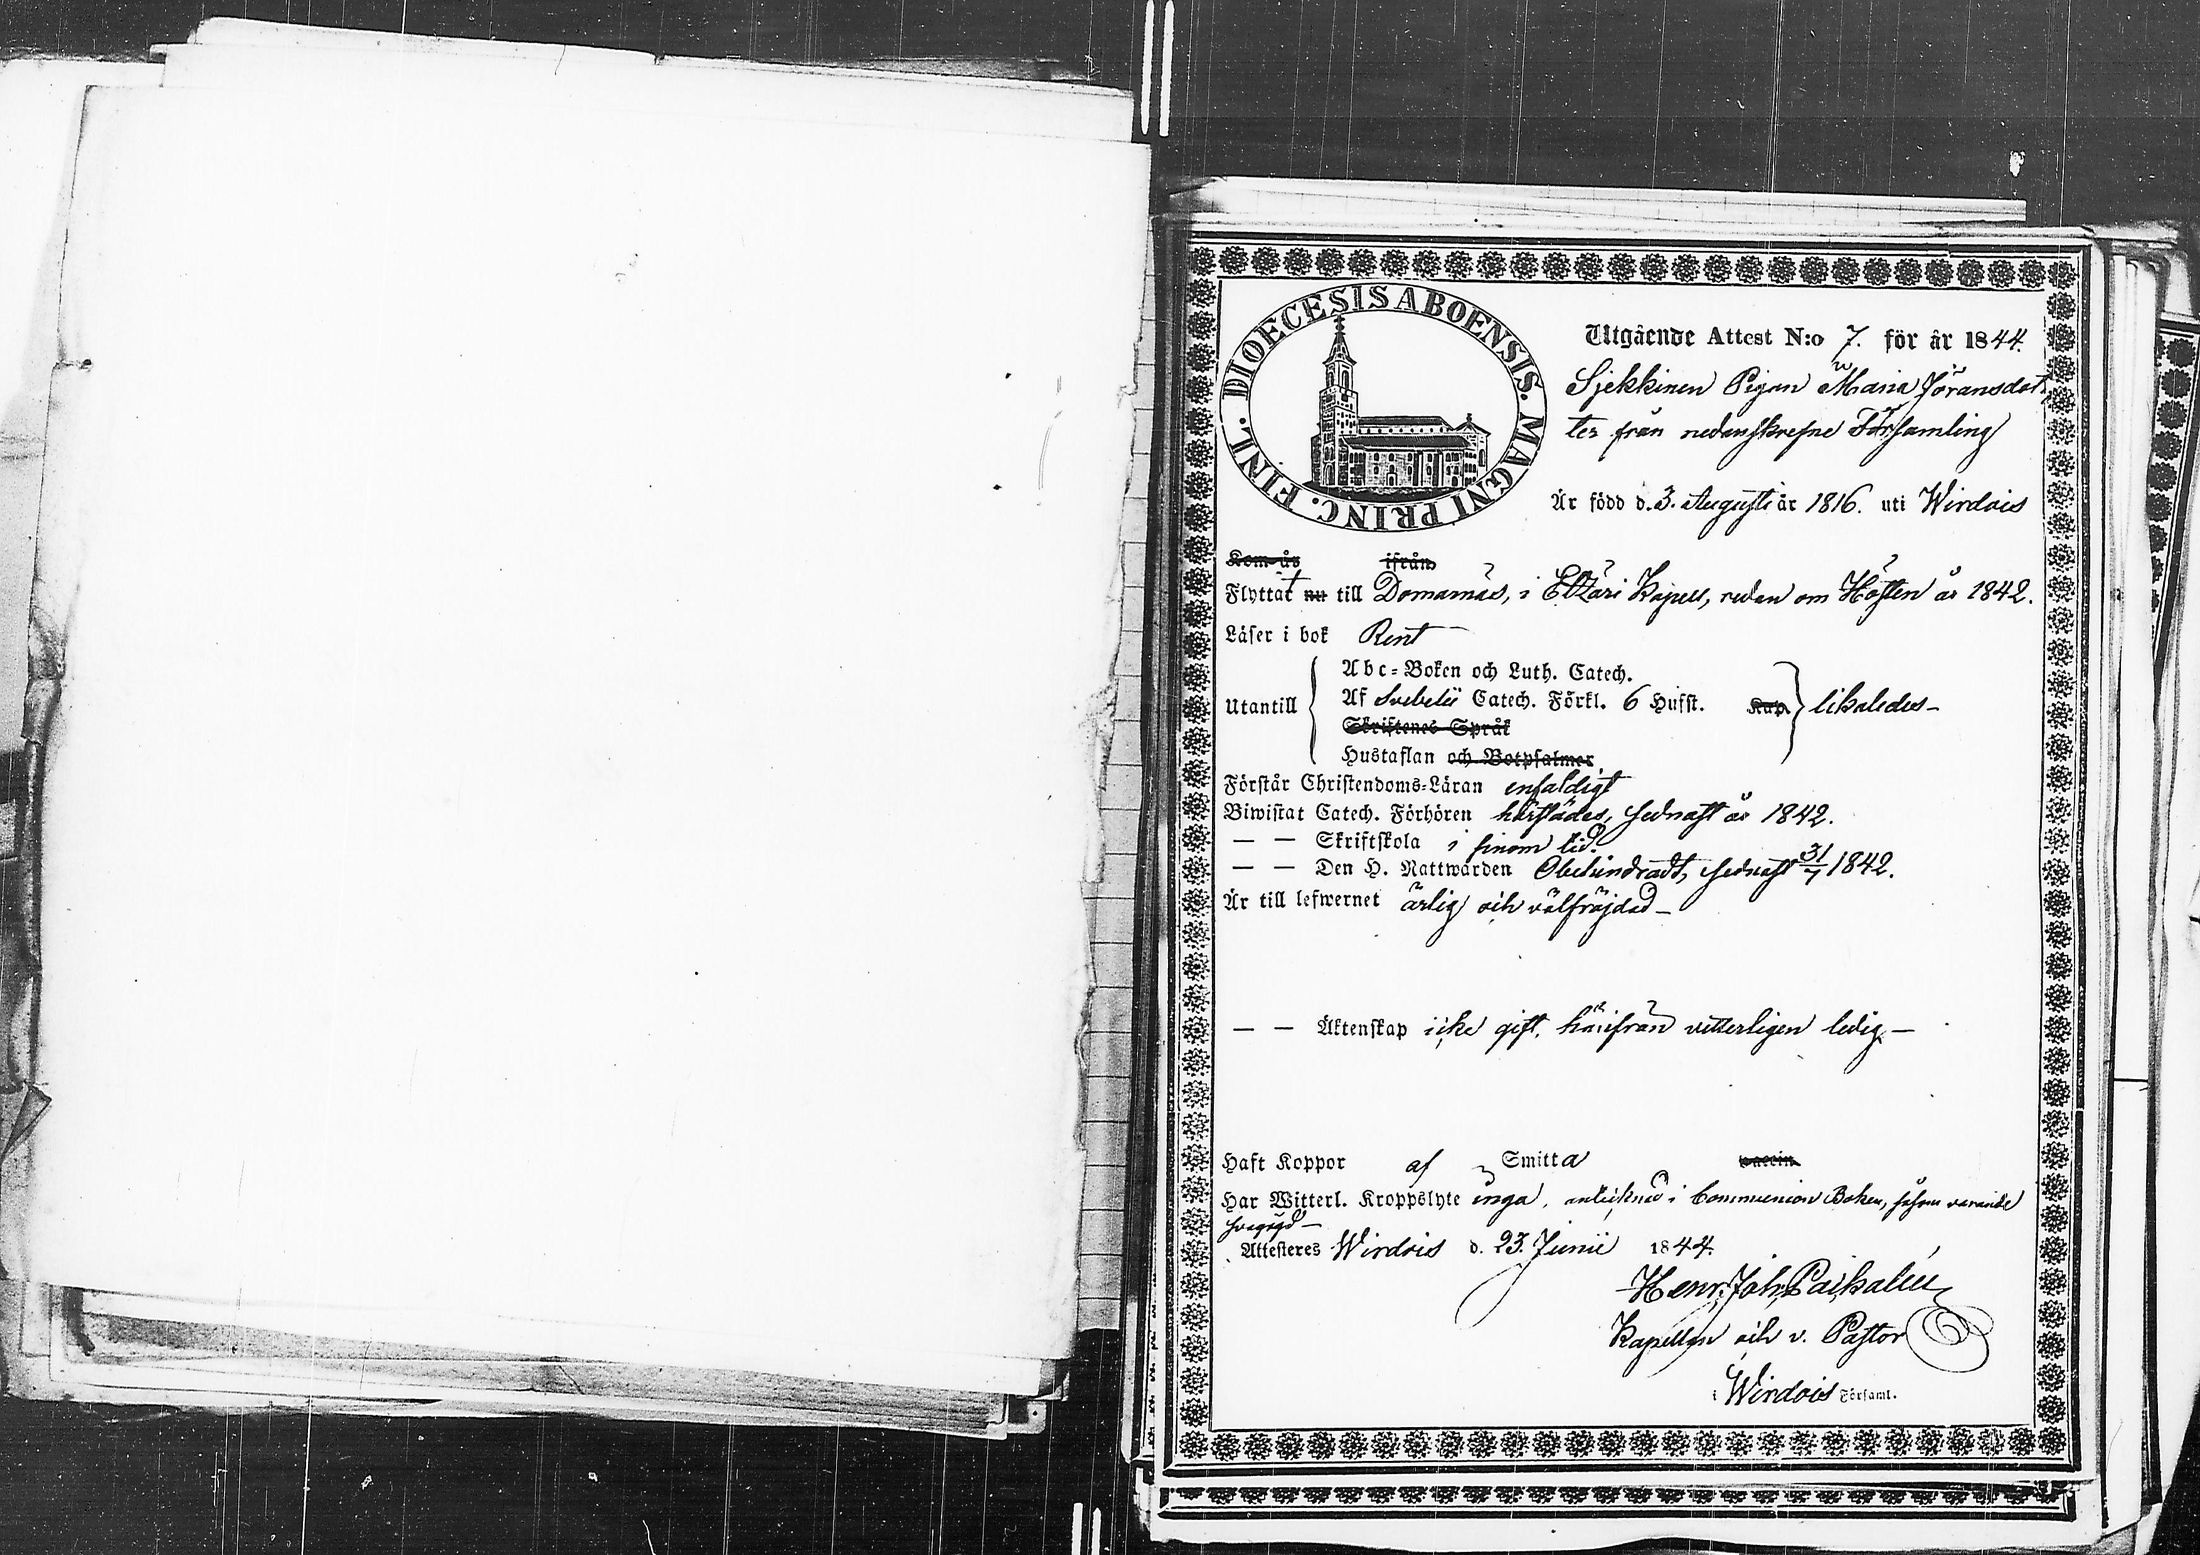 DIOECESIS ABOENSIS. MAGNI PRINC. FINL.
Utgående Attest N:o 7. för år 1844.
Sjekkinen Pigan Maria Jöransdot
ter från nedanskrefne Församling
Är född d. 3. Augusti år 1816. uti Wirdois
Kom år ifrån
Flyttat nu till Domarnäs, i Etzäri Kapell, redan om Hösten år 1842.
Läser i bok Rent
Abc-Boken och Luth. Catech.
Utantill Af Svebelii Catech. Förkl. 6 Hufst. Kap. likaledes
Skriftenes Språk
Hustaflan och Botpsalmer
Förstår Christendoms-Läran enfaldigt
Biwistat Catech. Förhören härstädes, sednast år 1842.
— — Skriftskola i sinom tid.
— — Den H. Nattwarden Obehindradt, sednast 31/7 1842.
Är till lefwernet ärlig och välfräjdad —
— — Äktenskap icke gift, härifrån vitterligen ledig. —
Haft Koppor af Smitta vaccin
Har Witterl. Kroppslyte inga, antecknad i Communion Boken, såsom varande
svagögd —
Attesteres Wirdois d. 23. Junii 1844.
Henr. Joh.
Kapellan och v. Pastor
i Wirdois Församl.